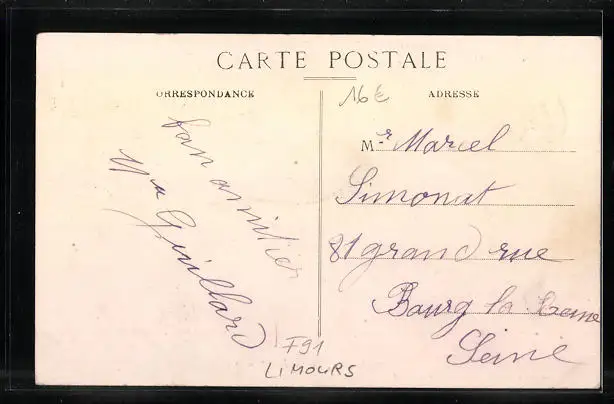 CARTE POSTALE
ORRESPONDANCE
16€
ADRESSE
Mr Marcel
Simonat
81 grand rue
Bourg la Reine
Seine
amitier
Guillard
F91
LIMOURS